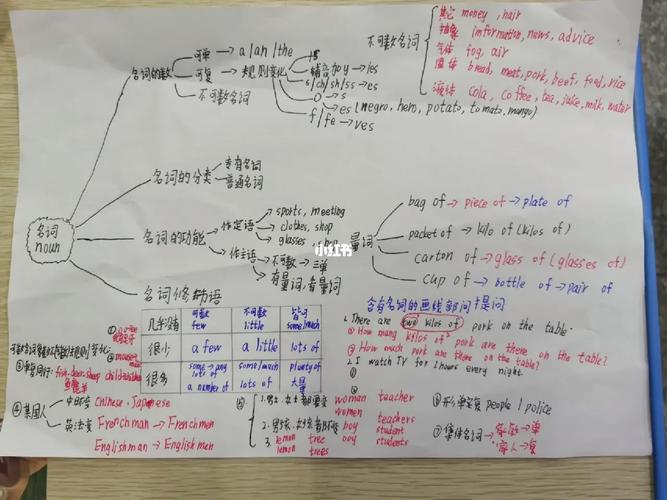 名词
noun
名词的数
可单 → a/an/the
可复 → 规则变化
不可数名词
辅音加y → ies
s/ch/sh/ss → es
O → s
es (negro, hero, potato, tomato, mango)
f/fe → ves
不可数名词
其它 money, hair
抽象 imformation, news, advice
气体 fog, air
固体 bread, meat, pork, beef, food, rice
液体 cola, coffee, tea, juice, milk, water
名词的分类
专有名词
普通名词
名词的功能
作定语
sports, meeting
clothes, shop
glasses, shop
作主语
不可数 → 三单
有量词, 看量词
量词
bag of → piece of → plate of
packet of → kilo of (kilos of)
carton of → glass of (glasses of)
cup of → bottle of → pair of
小红书
名词修饰语
可数 不可数 皆可
几乎没有 few little some/much
很少 a few a little lots of
很多 some → any lots of some/much plenty of
a number of lots of 大量
含有名词的画线部问提问
1. There are two kilos of pork on the table.
① How many kilos of pork are there on the table?
② How much pork are there on the table?
2. I watch TV for 2 hours every night
fish, deer, sheep
child → children
④ 某国人
中日不变 Chinese, Japanese
英法变 Frenchman → Frenchmen
Englishman → Englishmen
woman teacher
women teachers
boy student
boy students
3. lemon tree
lemon trees
people / police
⑦ 集体名词